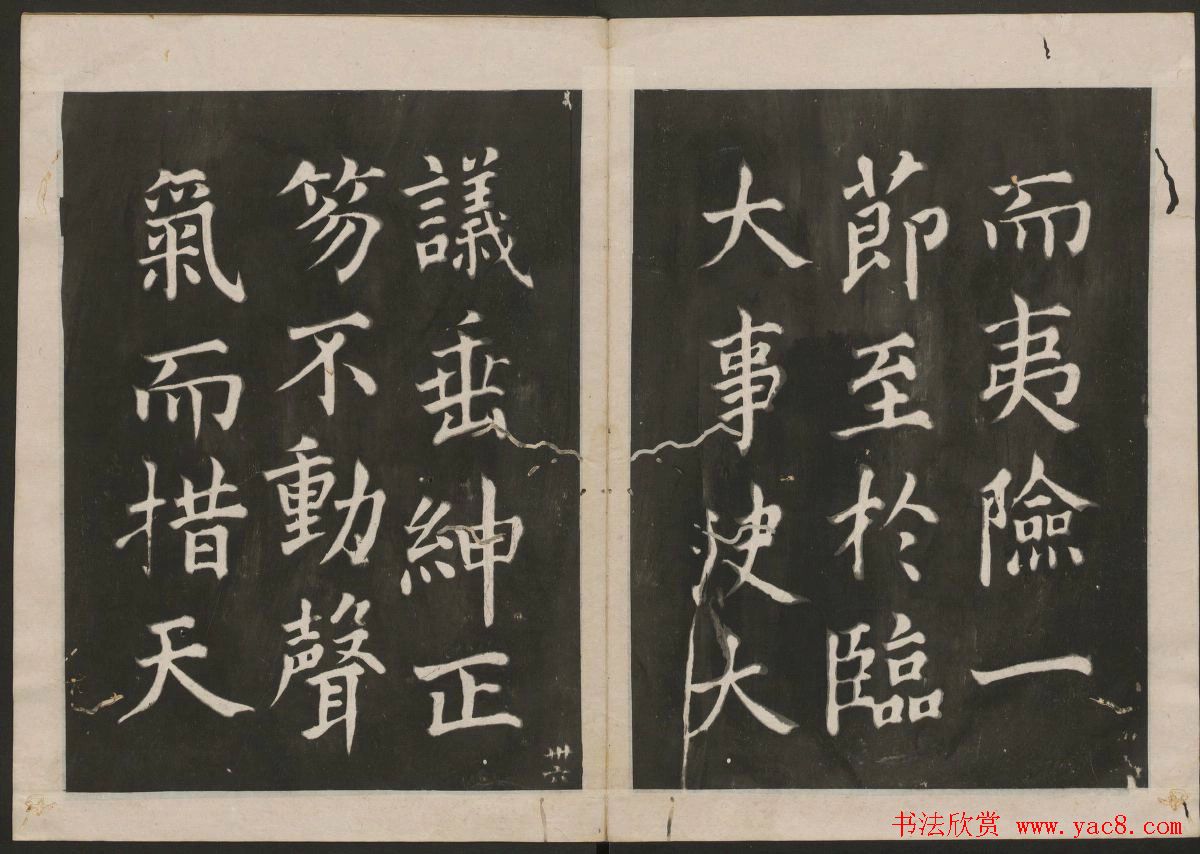 而夷險一
莭至於臨
大事决大
議垂紳正
笏不動聲
氣而措天
卅六
书法欣赏 www.yac8.com